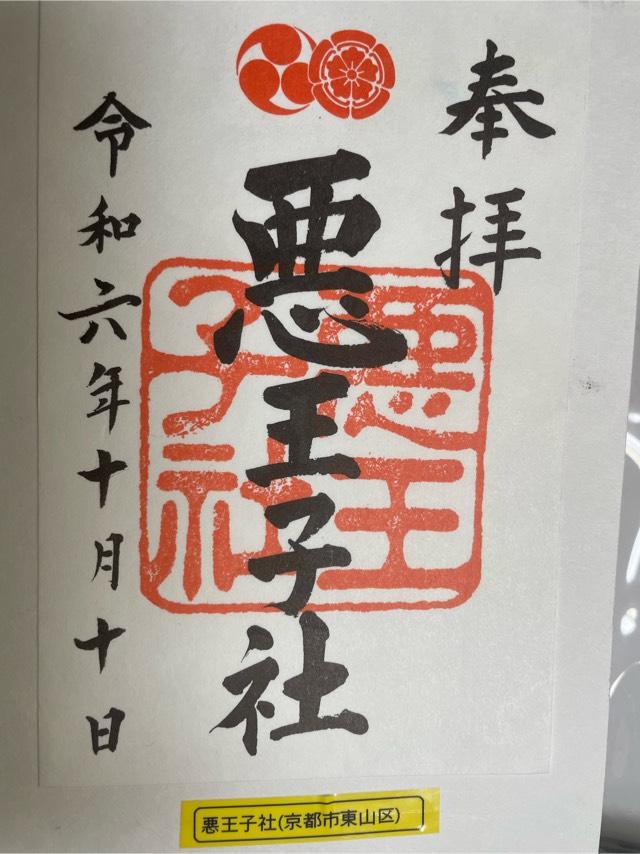 奉拝
悪王子社
悪王子社
令和六年十月十日
悪王子社(京都市東山区)